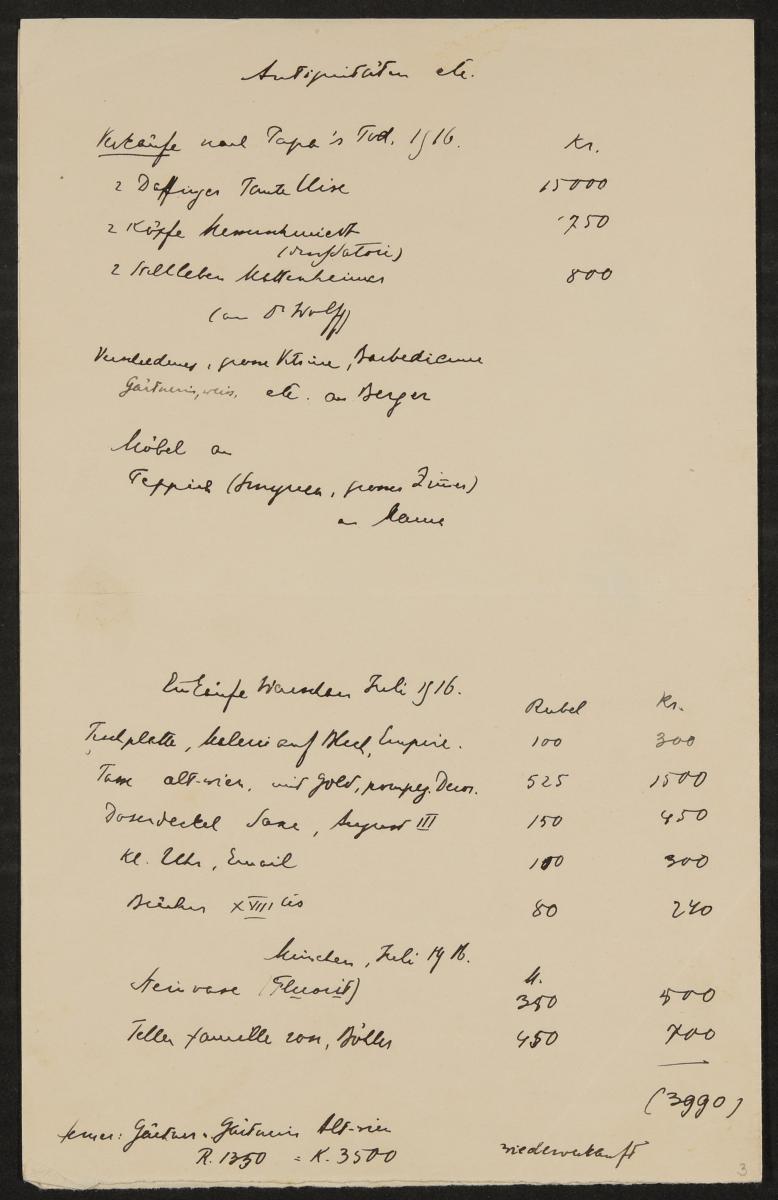 Antiquitäten etc.
Verkäufe nach Papa's Tod. 1916. Kr.
2 Daffinger Tante Elise 15000
2 Köpfe 750
2 Stillleben 800
(an Dr Wolff)
Verschiedenes, grosse Vitrine, Barbedienne
Gärtnerin, weis, etc. an Berger
Möbel an
Teppich (Smyrna, grosses Zimer)
an
Einkäufe Warschau Juli 1916. Rubel Kr.
Tischplatte, Malerei auf Blech, Empire. 100 300
Tasse alt-wien, mit Gold, pompej. Decor. 525 1500
Dosendeckel Saxe, August III 150 450
Kl. Uhr, Email 100 300
Bücher XVIII 80 240
München, Juli 1916.
M.
(Fluorit) 350 500
Teller famille rose, Böhler 450 700
(3990)
ferner: Gärtner u. Gärtnerin Alt-wien
R. 1350 = K. 3500 wiederverkauft
3